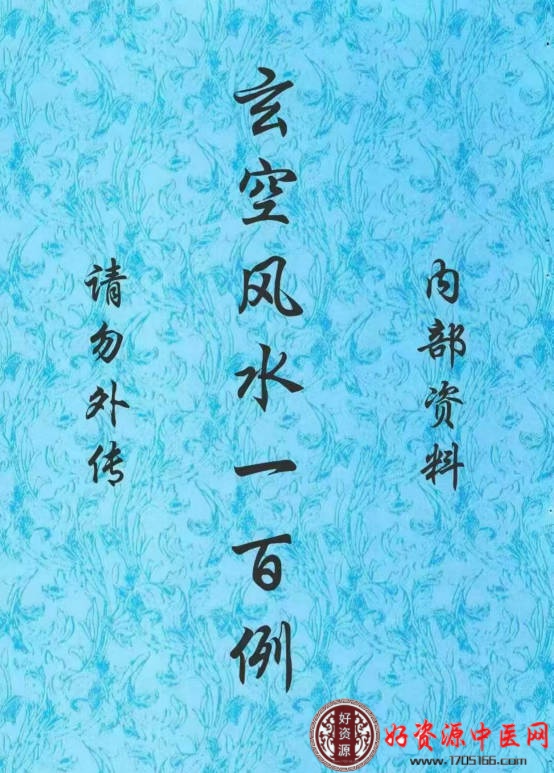 内部资料
玄空风水一百例
请勿外传
好资源
好资源中医网
www.1705166.com